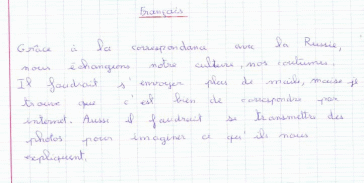 Français
Grâce à la correspondance avec la Russie,
nous échangeons notre culture, nos coutumes.
Il faudrait s'envoyer plus de mails, mais je
trouve que c'est bien de correspondre par
internet. Aussi il faudrait se transmettre des
photos pour imaginer ce qu'ils nous
expliquent.